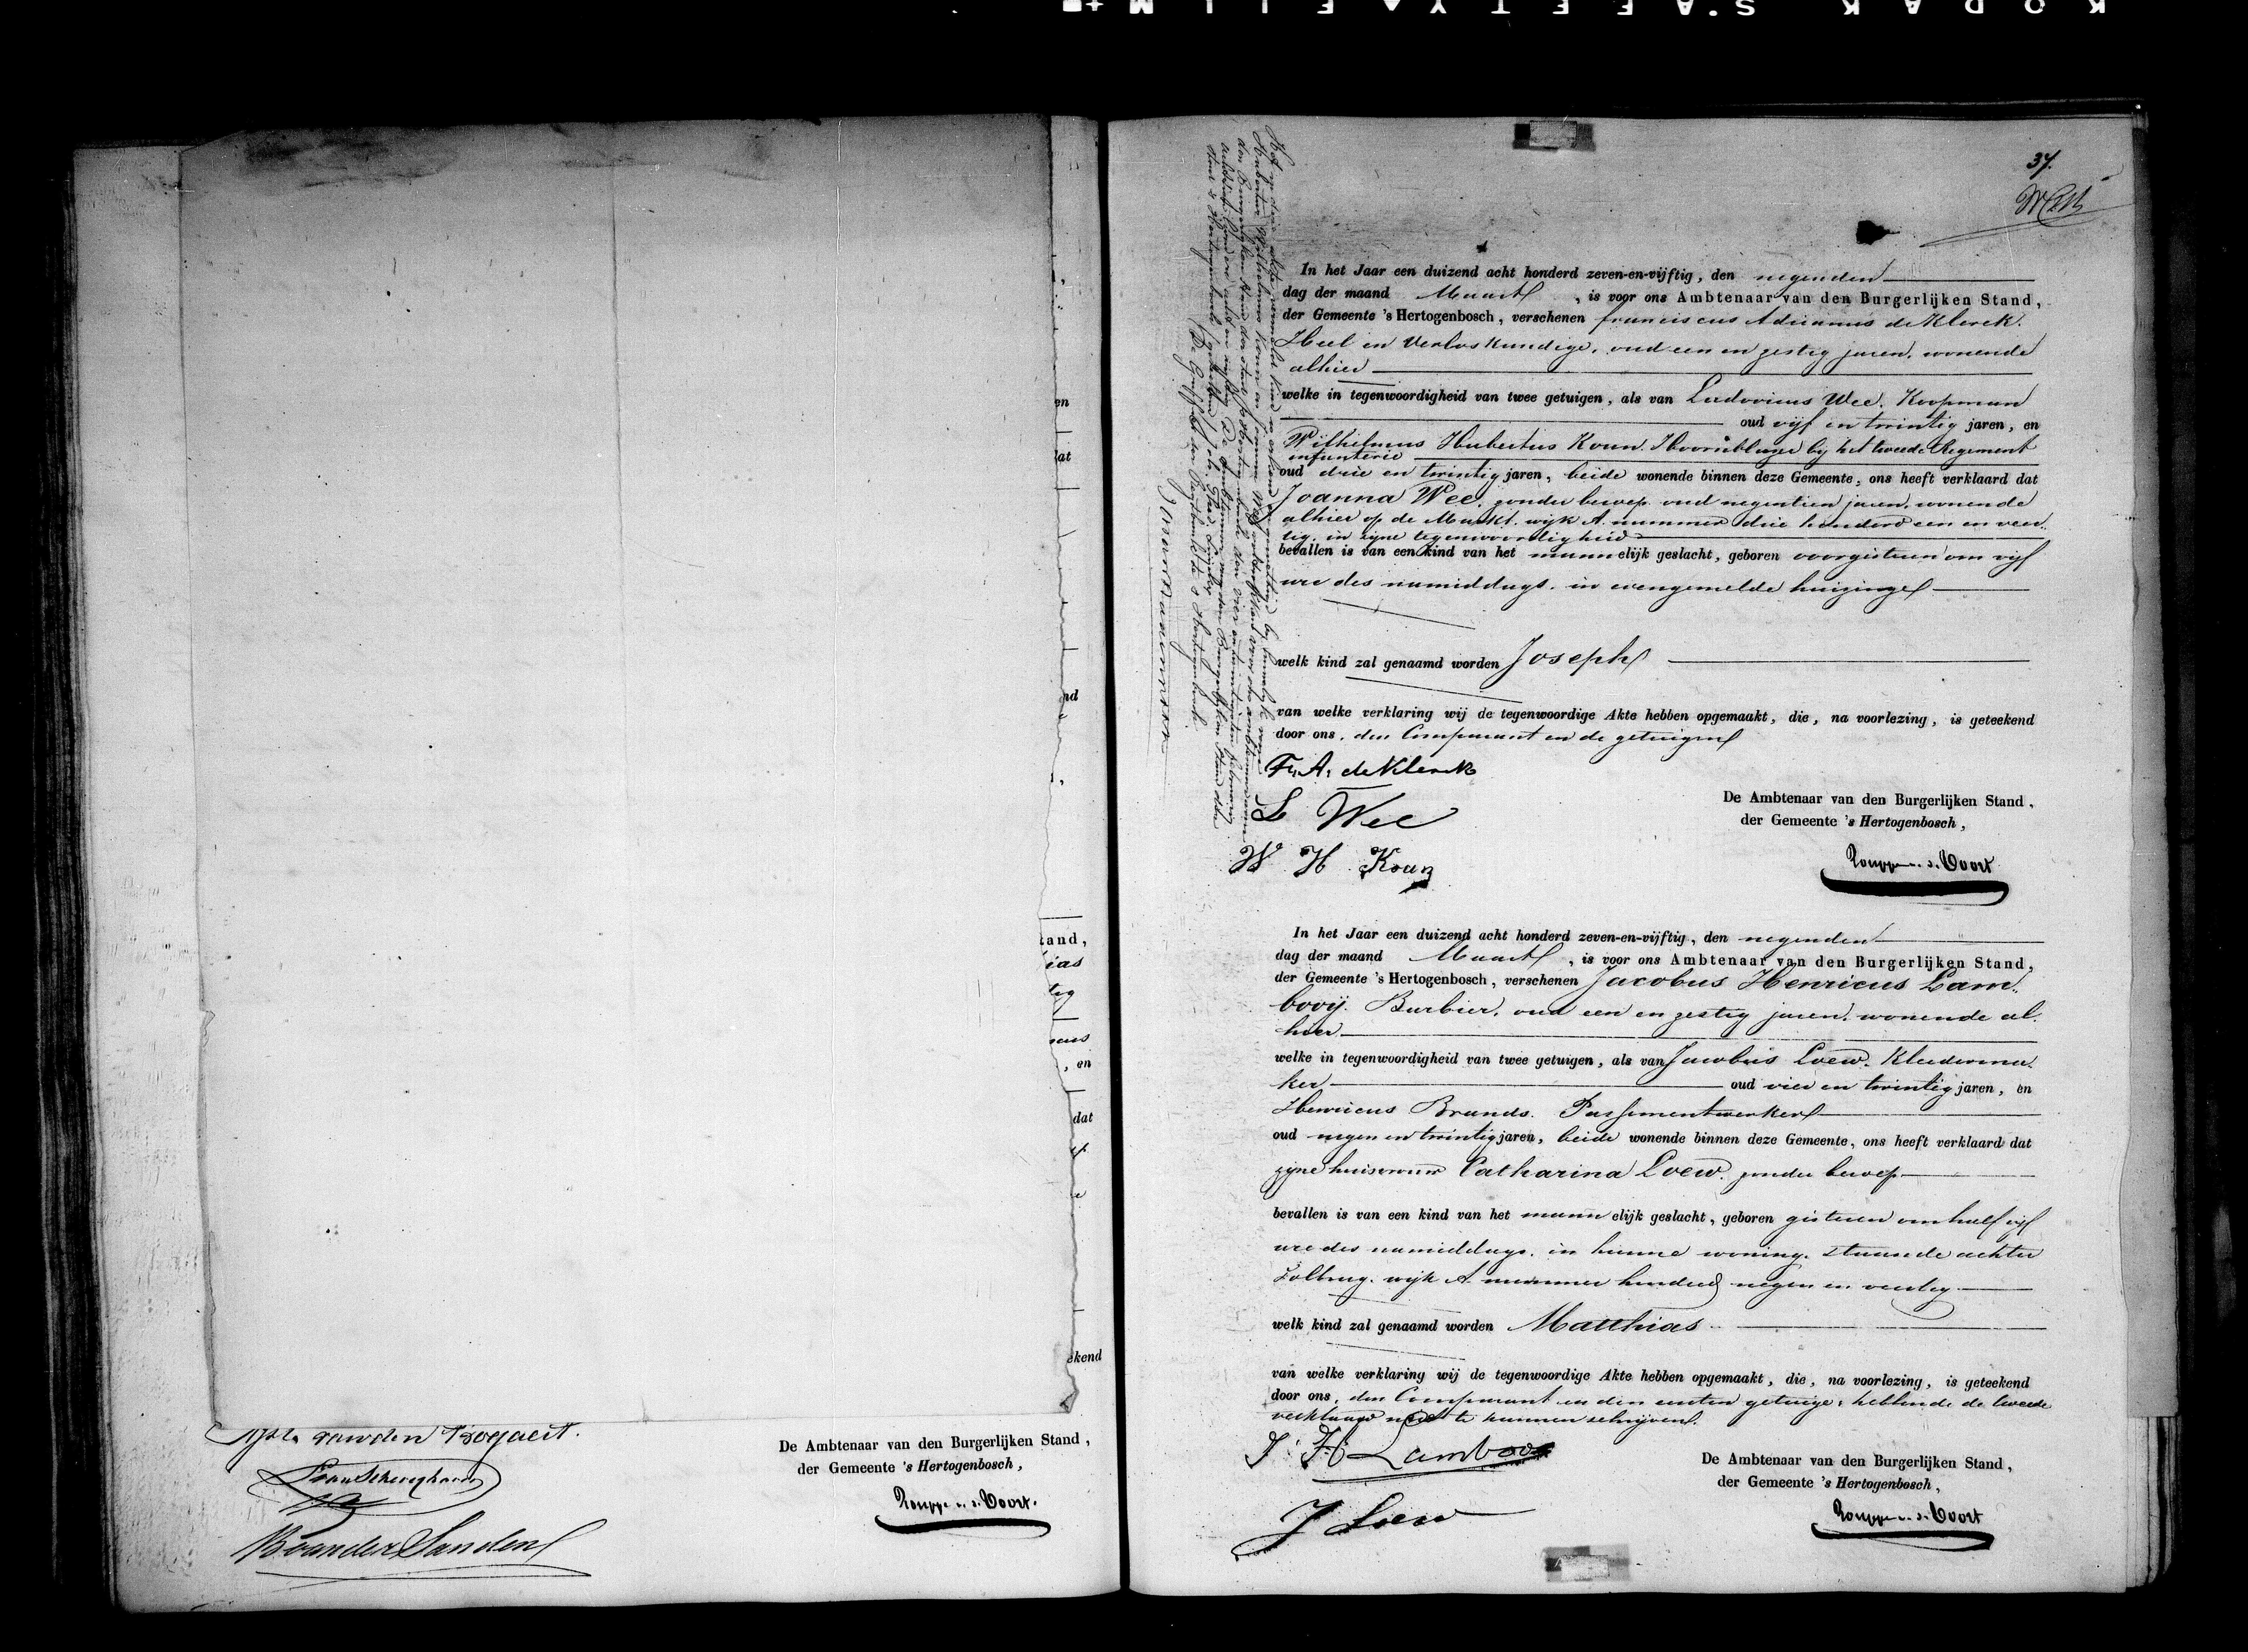 KODAK SAFETY FILM
en
dat
nd
tand,
ias
tig
, en
dat
ekend
van den Bogaert.
De Ambtenaar van den Burgerlijken Stand,
der Gemeente 's Hertogenbosch,
v. d. Voort.
B van der Sanden
37.
In het Jaar een duizend acht honderd zeven-en-vijftig, den negenden
dag der maand Maart, is voor ons Ambtenaar van den Burgerlijken Stand,
der Gemeente 's Hertogenbosch, verschenen franciscus Adrianus de Klerck.
Heel en Verloskundige, oud een en zestig jaren, wonende
alhier
welke in tegenwoordigheid van twee getuigen, als van Ludovicus Wee, Koopman
oud vijf en twintig jaren, en
Wilhelmus Hubertus Koun. Hoornblazer bij het tweede Regement
infanterie
oud drie en twintig jaren, beide wonende binnen deze Gemeente, ons heeft verklaard dat
Joanna Wee, zonder beroep, oud negentien jaren, wonende
alhier op de Markt, wijk A. nummer drie honderd een en veer
tig, in zijne tegenwoordigheid
bevallen is van een kind van het mannelijk geslacht, geboren voorgisteren om vijf
ure des namiddags, in evengemelde huizinge
welk kind zal genaamd worden Joseph
van welke verklaring wij de tegenwoordige Akte hebben opgemaakt, die, na voorlezing, is geteekend
door ons, den Comparant en de getuigen
Fr. A. de Klerck
L Wee
W H Koun
De Ambtenaar van den Burgerlijken Stand,
der Gemeente 's Hertogenbosch,
v. d. Voort
In het Jaar een duizend acht honderd zeven-en-vijftig, den negenden
dag der maand Maart, is voor ons Ambtenaar van den Burgerlijken Stand,
der Gemeente 's Hertogenbosch, verschenen Jacobus Henricus Lam
booij. Barbier, oud een en zestig jaren, wonende al
hier
welke in tegenwoordigheid van twee getuigen, als van Jacobus Loew. Kleederma
ker oud vier en twintig jaren, en
Henricus Brands. Passementwerker
oud negen en twintig jaren, beide wonende binnen deze Gemeente, ons heeft verklaard dat
zijne huisvrouw Catharina Loew. zonder beroep
bevallen is van een kind van het mannelijk geslacht, geboren gisteren om half vijf
ure des namiddags, in hunne woning, staande achter
Tolbrug, wijk A nummer honderd negen en veertig
welk kind zal genaamd worden Matthias
van welke verklaring wij de tegenwoordige Akte hebben opgemaakt, die, na voorlezing, is geteekend
door ons, den Comparant en den eersten getuige, hebbende de tweede
verklaard niet te kunnen schrijven.
J H Lambooy
J Loew
De Ambtenaar van den Burgerlijken Stand,
der Gemeente 's Hertogenbosch,
v. d. Voort